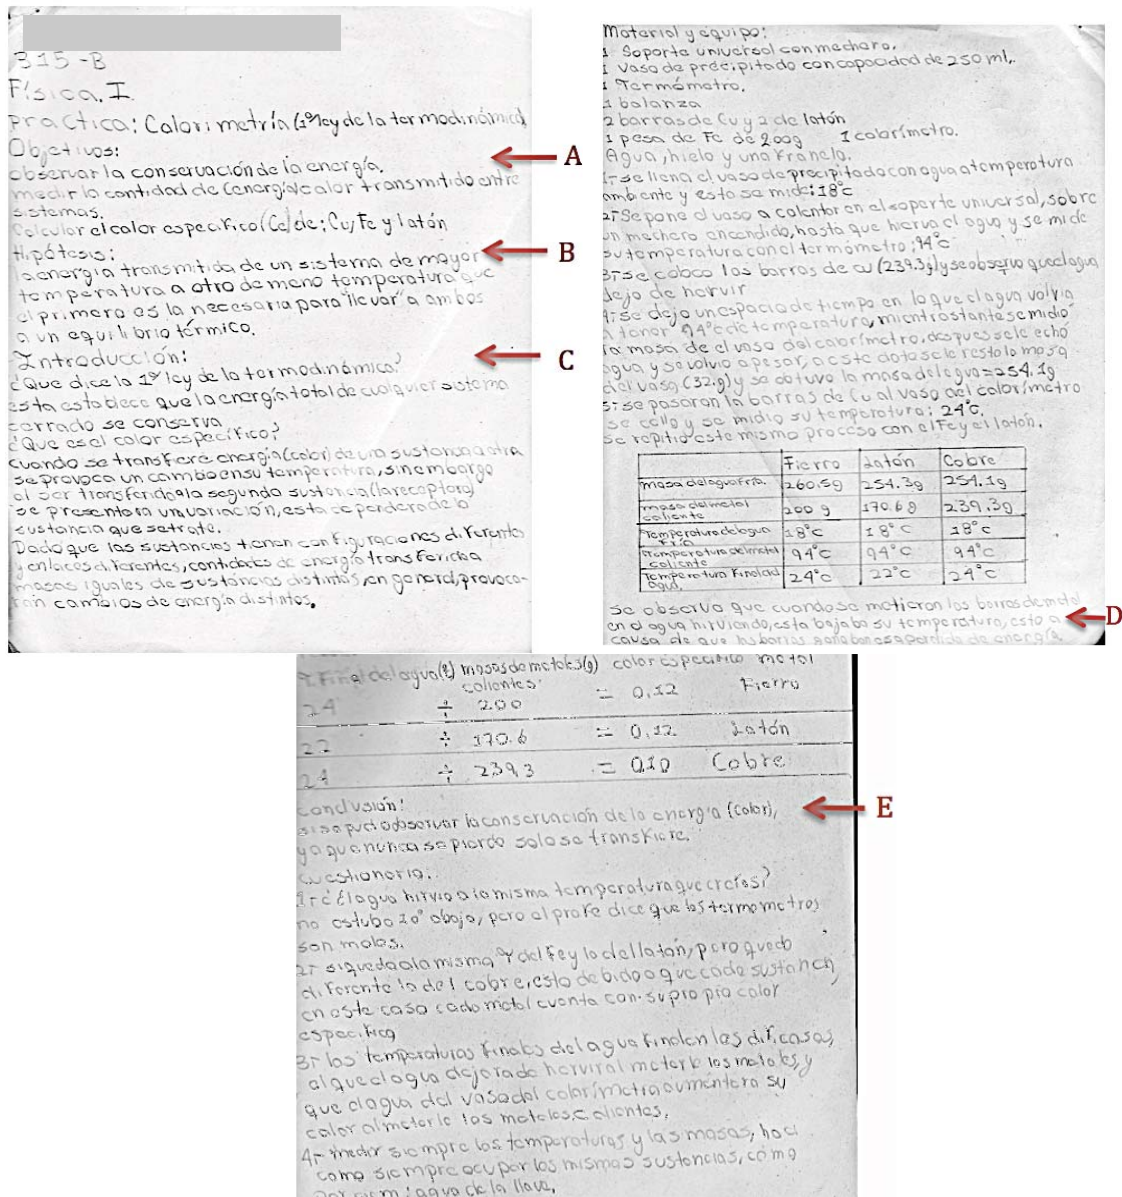 315-B
Física. I
Practica: Calorimetría (1ª ley de la termodinámica)
Objetivos:
observar la conservación de la energía.
medir la cantidad de (energía) calor transmitido entre
sistemas.
Calcular el calor especifico (Ce) de: Cu, Fe y latón
Hipótesis:
la energía transmitida de un sistema de mayor
temperatura a otro de meno temperatura que
el primero es la necesaria para "llevar" a ambos
a un equilibrio térmico.
Introducción:
¿Que dice la 1ª ley de la termodinámica?
esta establece que la energía total de cualquier sistema
cerrado se conserva
¿Que es el calor específico?
cuando se transfiere energía (calor) de una sustancia a otra
se provoca un cambio en su temperatura, sin embargo
al ser transferida a la segunda sustancia (la receptora)
se presentara una variación, esta dependera de la
sustancia que se trate.
Dado que las sustancias tienen configuraciones diferentes
y enlaces diferentes, cantidades de energía transferida
masas iguales de sustancias distintas, en general, provoca-
ran cambios de energía distintos.
A
B
C
Material y equipo:
1 Soporte universal con mechero.
1 vaso de precipitado con capacidad de 250 ml.
1 Termómetro.
1 balanza
2 barras de Cu y 2 de latón
1 pesa de Fe de 200g 1 calorímetro.
Agua, hielo y una franela.
1- se llena el vaso de precipitado con agua a temperatura
ambiente y esta se mide: 18°c
2- Se pone el vaso a calentar en el soporte universal, sobre
un mechero encendido, hasta que hierva el agua y se mide
su temperatura con el termómetro: 94°c.
3- se coloco las barras de cu (239.3g) y se observo que el agua
dejo de hervir
4- se dejo un espacio de tiempo en lo que el agua volvía
a tener 94°c de temperatura, mientras tanto se midio
la masa de el vaso del calorímetro, despues se le echó
agua y se volvio a pesar, a este dato se le resto la masa
del vaso (32.g) y se obtuvo la masa del agua = 254.1g
5- se pasaron la barras de Cu al vaso del calorímetro
se callo y se midio su temperatura: 24°c.
se repitio este mismo proceso con el Fe y el latón.
Fierro Latón Cobre
masa del agua fria. 260.5g 254.3g 254.1g
masa del metal caliente 200 g 170.6g 239.3g
Temperatura del agua fria 18°c 18°c 18°c
Temperatura del metal caliente 94°c 94°c 94°c
Temperatura final del agua. 24°c 22°c 24°c
se observa que cuando se metieron las barras de metal
en el agua hirviendo, esta bajaba su temperatura, esto a
causa de que las barras ganaban esa perdida de energía
D
T. Final del agua(t) masas de metales(g) calor especifico metal
calientes
24 ÷ 200 = 0.12 Fierro
22 ÷ 170.6 = 0.12 Latón
24 ÷ 239.3 = 0.10 Cobre
Conclusión:
si se pudo observar la conservación de la energía (calor),
ya que nunca se pierde solo se transfiere.
Cuestionario.
1- ¿El agua hirvio a la misma temperatura que creías?
no estubo 10° abajo, pero el profe dice que los termometros
son malos.
2- si queda a la misma del Fe y la del latón, pero quedo
diferente la del cobre, esto debido a que cada sustancia,
en este caso cada metal cuenta con su propio calor
especifico
3- las temperaturas finales del agua
al que el agua dejara de hervir al meterle los metales, y
que el agua del vaso del calorímetro aumentara su
calor al meterle los metales calientes.
4- medir siempre las temperaturas y las masas,
como siempre ocupar las mismas sustancias, como
por ejem: agua de la llave.
E